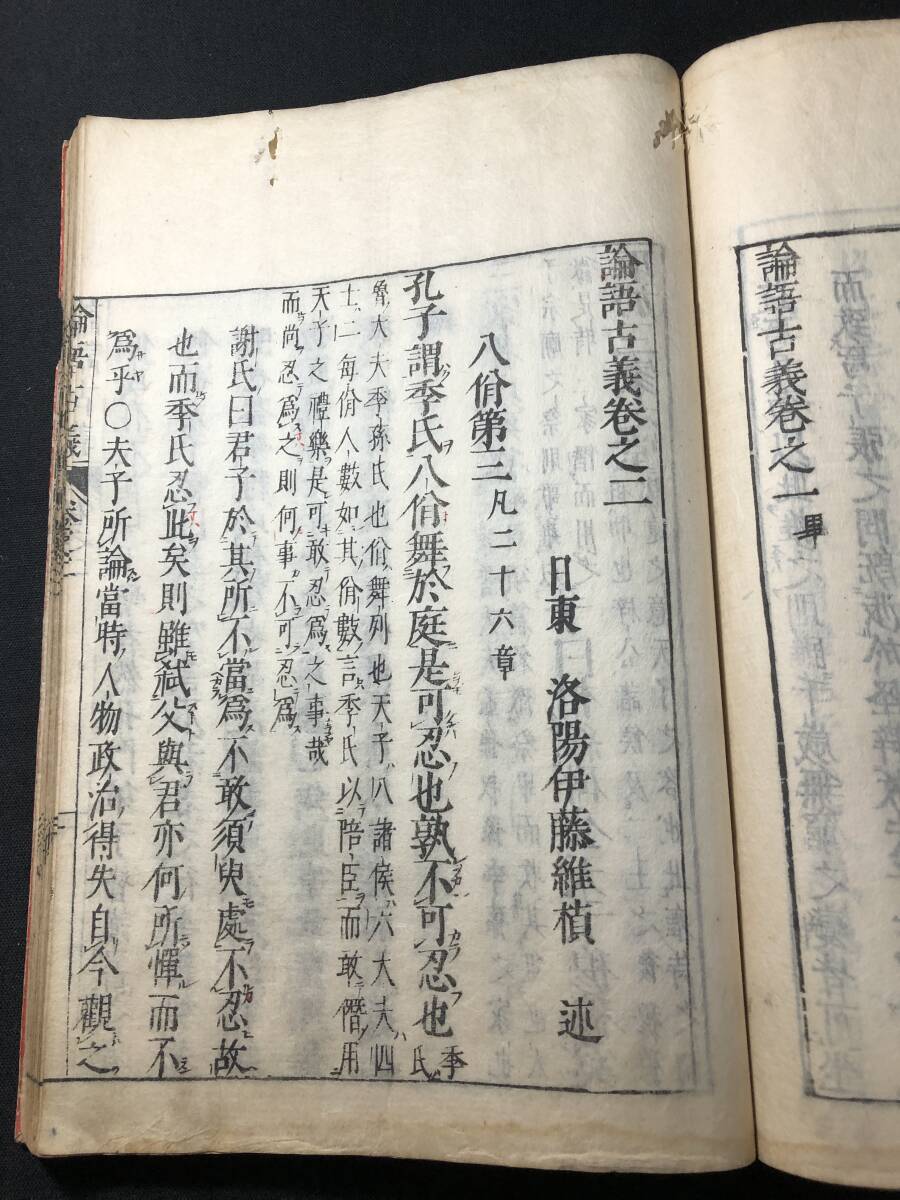 論語古義卷之一 畢
論語古義卷之二
日東 洛陽伊藤維楨 述
八佾第三 凡二十六章
孔子謂季氏八佾舞於庭是可忍也孰不可忍也 季氏
魯大夫季孫氏也佾舞列也天子八諸侯六大夫四
士二每佾人數如其佾數言季氏以陪臣而敢僭用
天子之禮樂是可敢忍爲之事哉
而尚忍爲之則何事不可忍爲
謝氏曰君子於其所不當爲不敢須臾處不忍故
也而季氏忍此矣則雖弑父與君亦何所憚而不
爲乎○夫子所論當時人物政治得失自今觀之
論語古義 卷之二